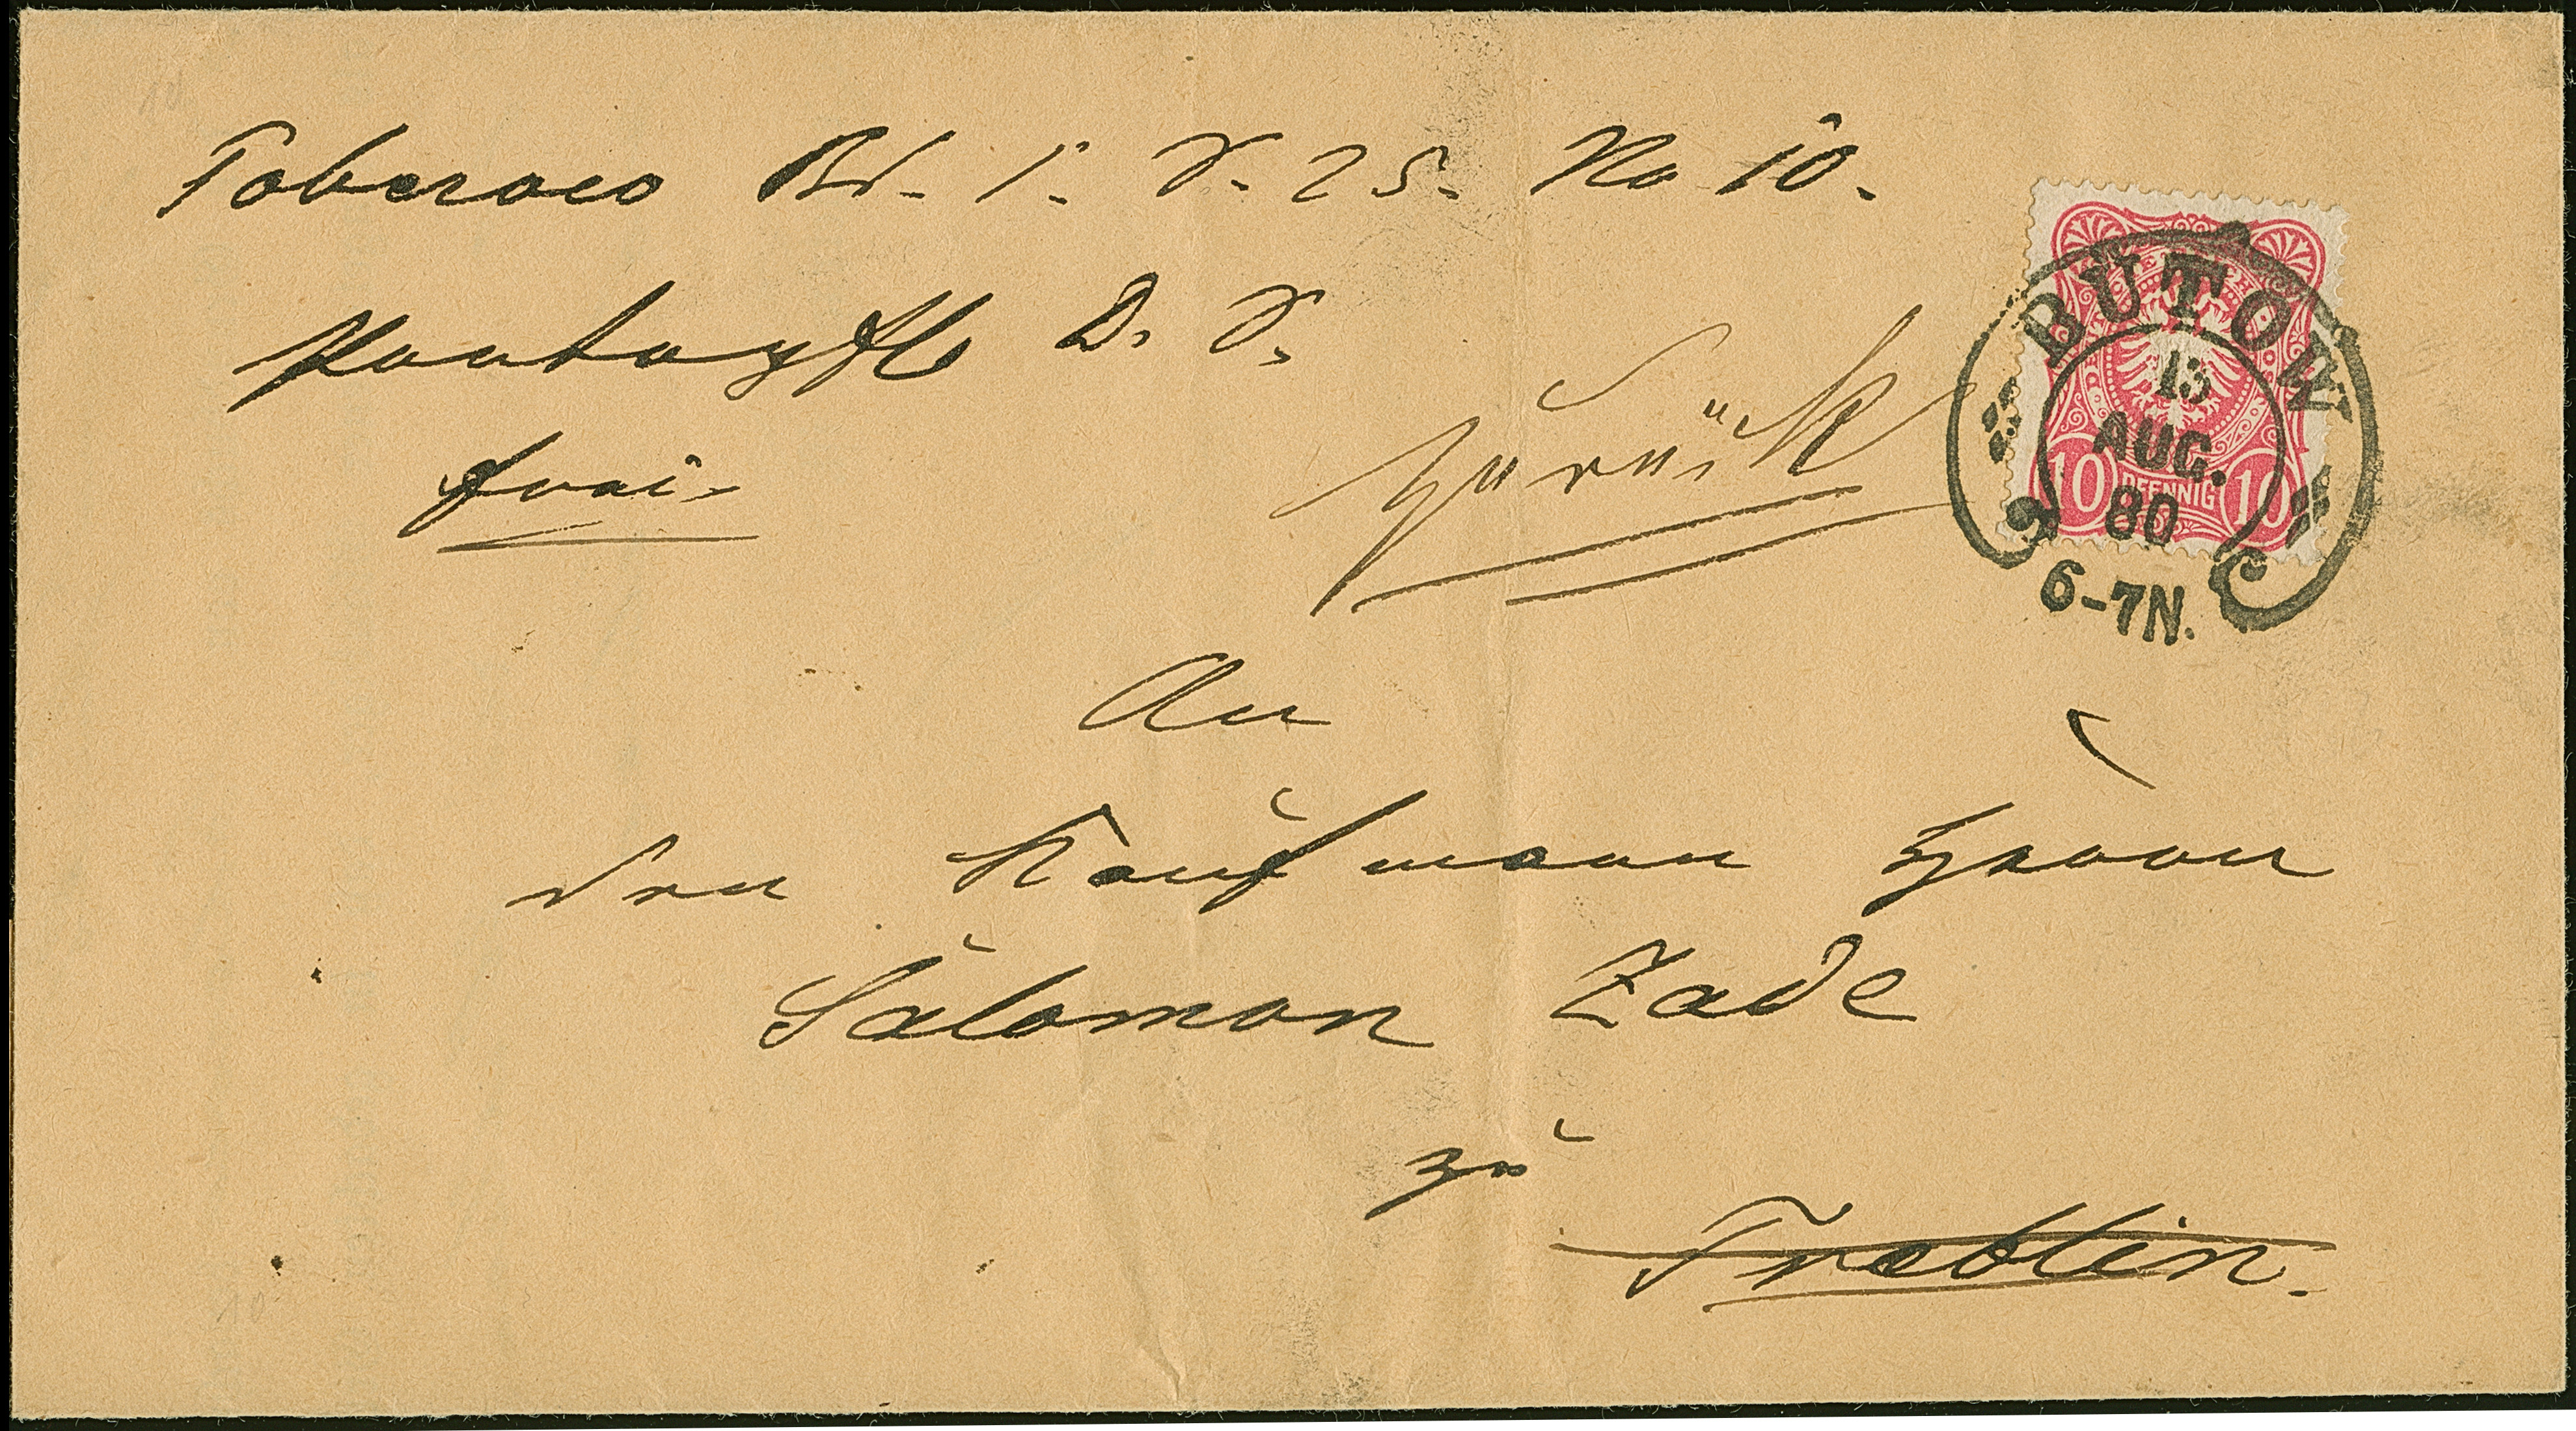 Bd. 1. S. 25. No 10.
D. S.
frei.
Zurück
BÜTOW
13
AUG.
80
6-7N.
10 PFENNIG 10
An
den Kaufmann Herrn
Salomon Zade
zu
Treblin.